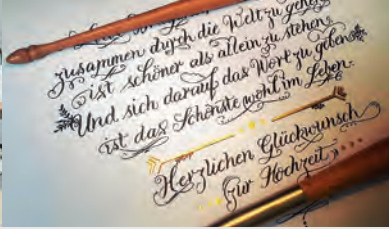 zusammen durch die Welt zu gehen
ist schöner als allein zu stehen
Und sich darauf das Wort zu geben
ist das Schönste wohl im Leben.
Herzlichen Glückwunsch
zur Hochzeit